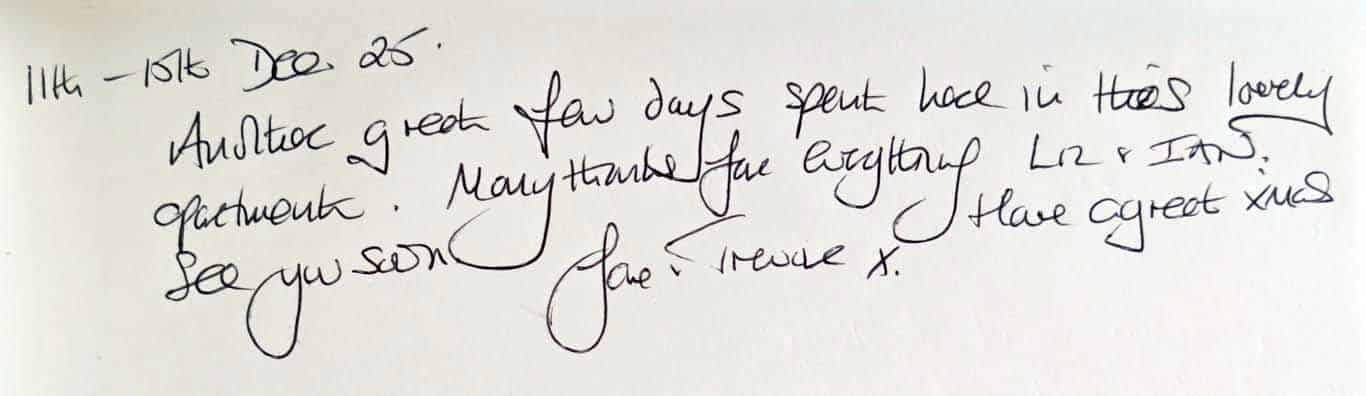 11th - 15th Dec. 25.
Another great few days spent here in this lovely
apartment. Many thanks for everything Liz & IAN.
Have a great xmas
See you soon Jane & Trevor x.